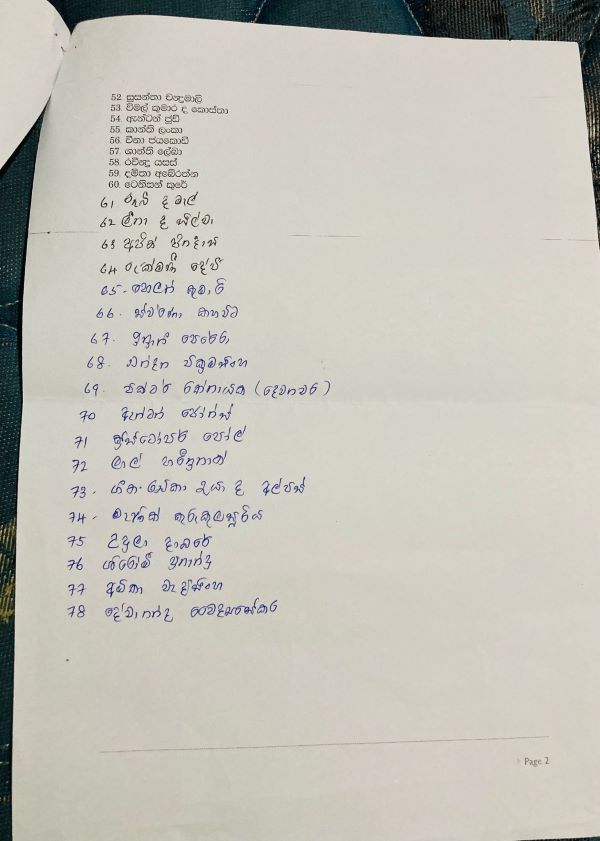 52. සුසන්තා චන්ද්‍රමාලි
53. විමල් කුමාර ද කොස්තා
54. ඇන්ටන් ජූඩ්
55. කාන්ති ලංකා
56. වීනා ජයකොඩි
57. ශාන්ති ලේඛා
58. රවීන්ද්‍ර යසස්
59. දමිතා අබේරත්න
60. ටෙනිසන් කුරේ
61 රූබි ද මැල්
62 ලීනා ද සිල්වා
63 අජිත් ජිනදාස
64 රුක්මණී දේවි
65. හෙලන් කුමාරි
66. ස්වර්ණා කහවිට
67. පෙරේරා
68. චන්දන වික්‍රමසිංහ
69. වික්ටර් රත්නායක (දෙවනවර)
70 ඇන්ටන් ජෝන්ස්
71 ක්‍රිස්ටෝපර් පෝල්
72 ලාල්
73. ද අල්විස්
74. මැණික් කුරුකුලසූරිය
75 උදුලා දාබරේ
76 ශිරෝමි ප්‍රනාන්දු
77 අමිතා වැදිසිංහ
78 දේවානන්ද වෛද්‍යසේකර
Page 2